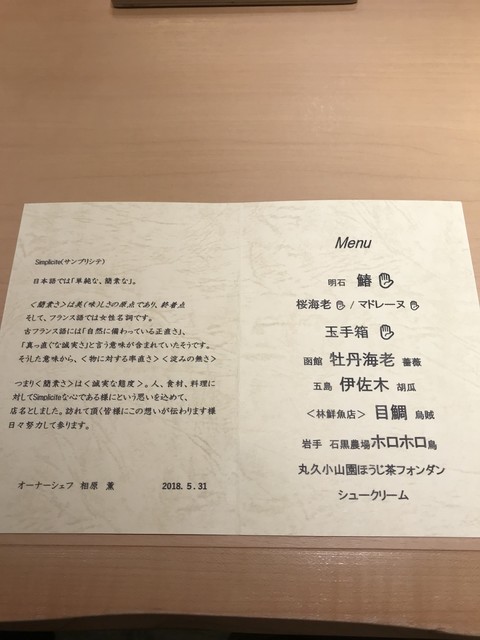 Simplicite(サンプリシテ)
日本語では「単純な、簡素な」。
<簡素さ>は美(味)しさの原点であり、終着点
そして、フランス語では女性名詞です。
古フランス語には「自然に備わっている正直さ」、
「真っ直ぐな誠実さ」と言う意味が含まれていたそうです。
そうした意味から、<物に対する率直さ> <淀みの無さ>
つまり<簡素さ>は<誠実な態度>。人、食材、料理に
対してSimpliciteな心である様にという思いを込めて、
店名としました。訪れて頂く皆様にこの想いが伝わります様
日々努力して参ります。
オーナーシェフ 相原 薫 2018. 5. 31
Menu
明石 鰆
桜海老 / マドレーヌ
玉手箱
函館 牡丹海老 薔薇
五島 伊佐木 胡瓜
<林鮮魚店> 目鯛 烏賊
岩手 石黒農場ホロホロ鳥
丸久小山園ほうじ茶フォンダン
シュークリーム